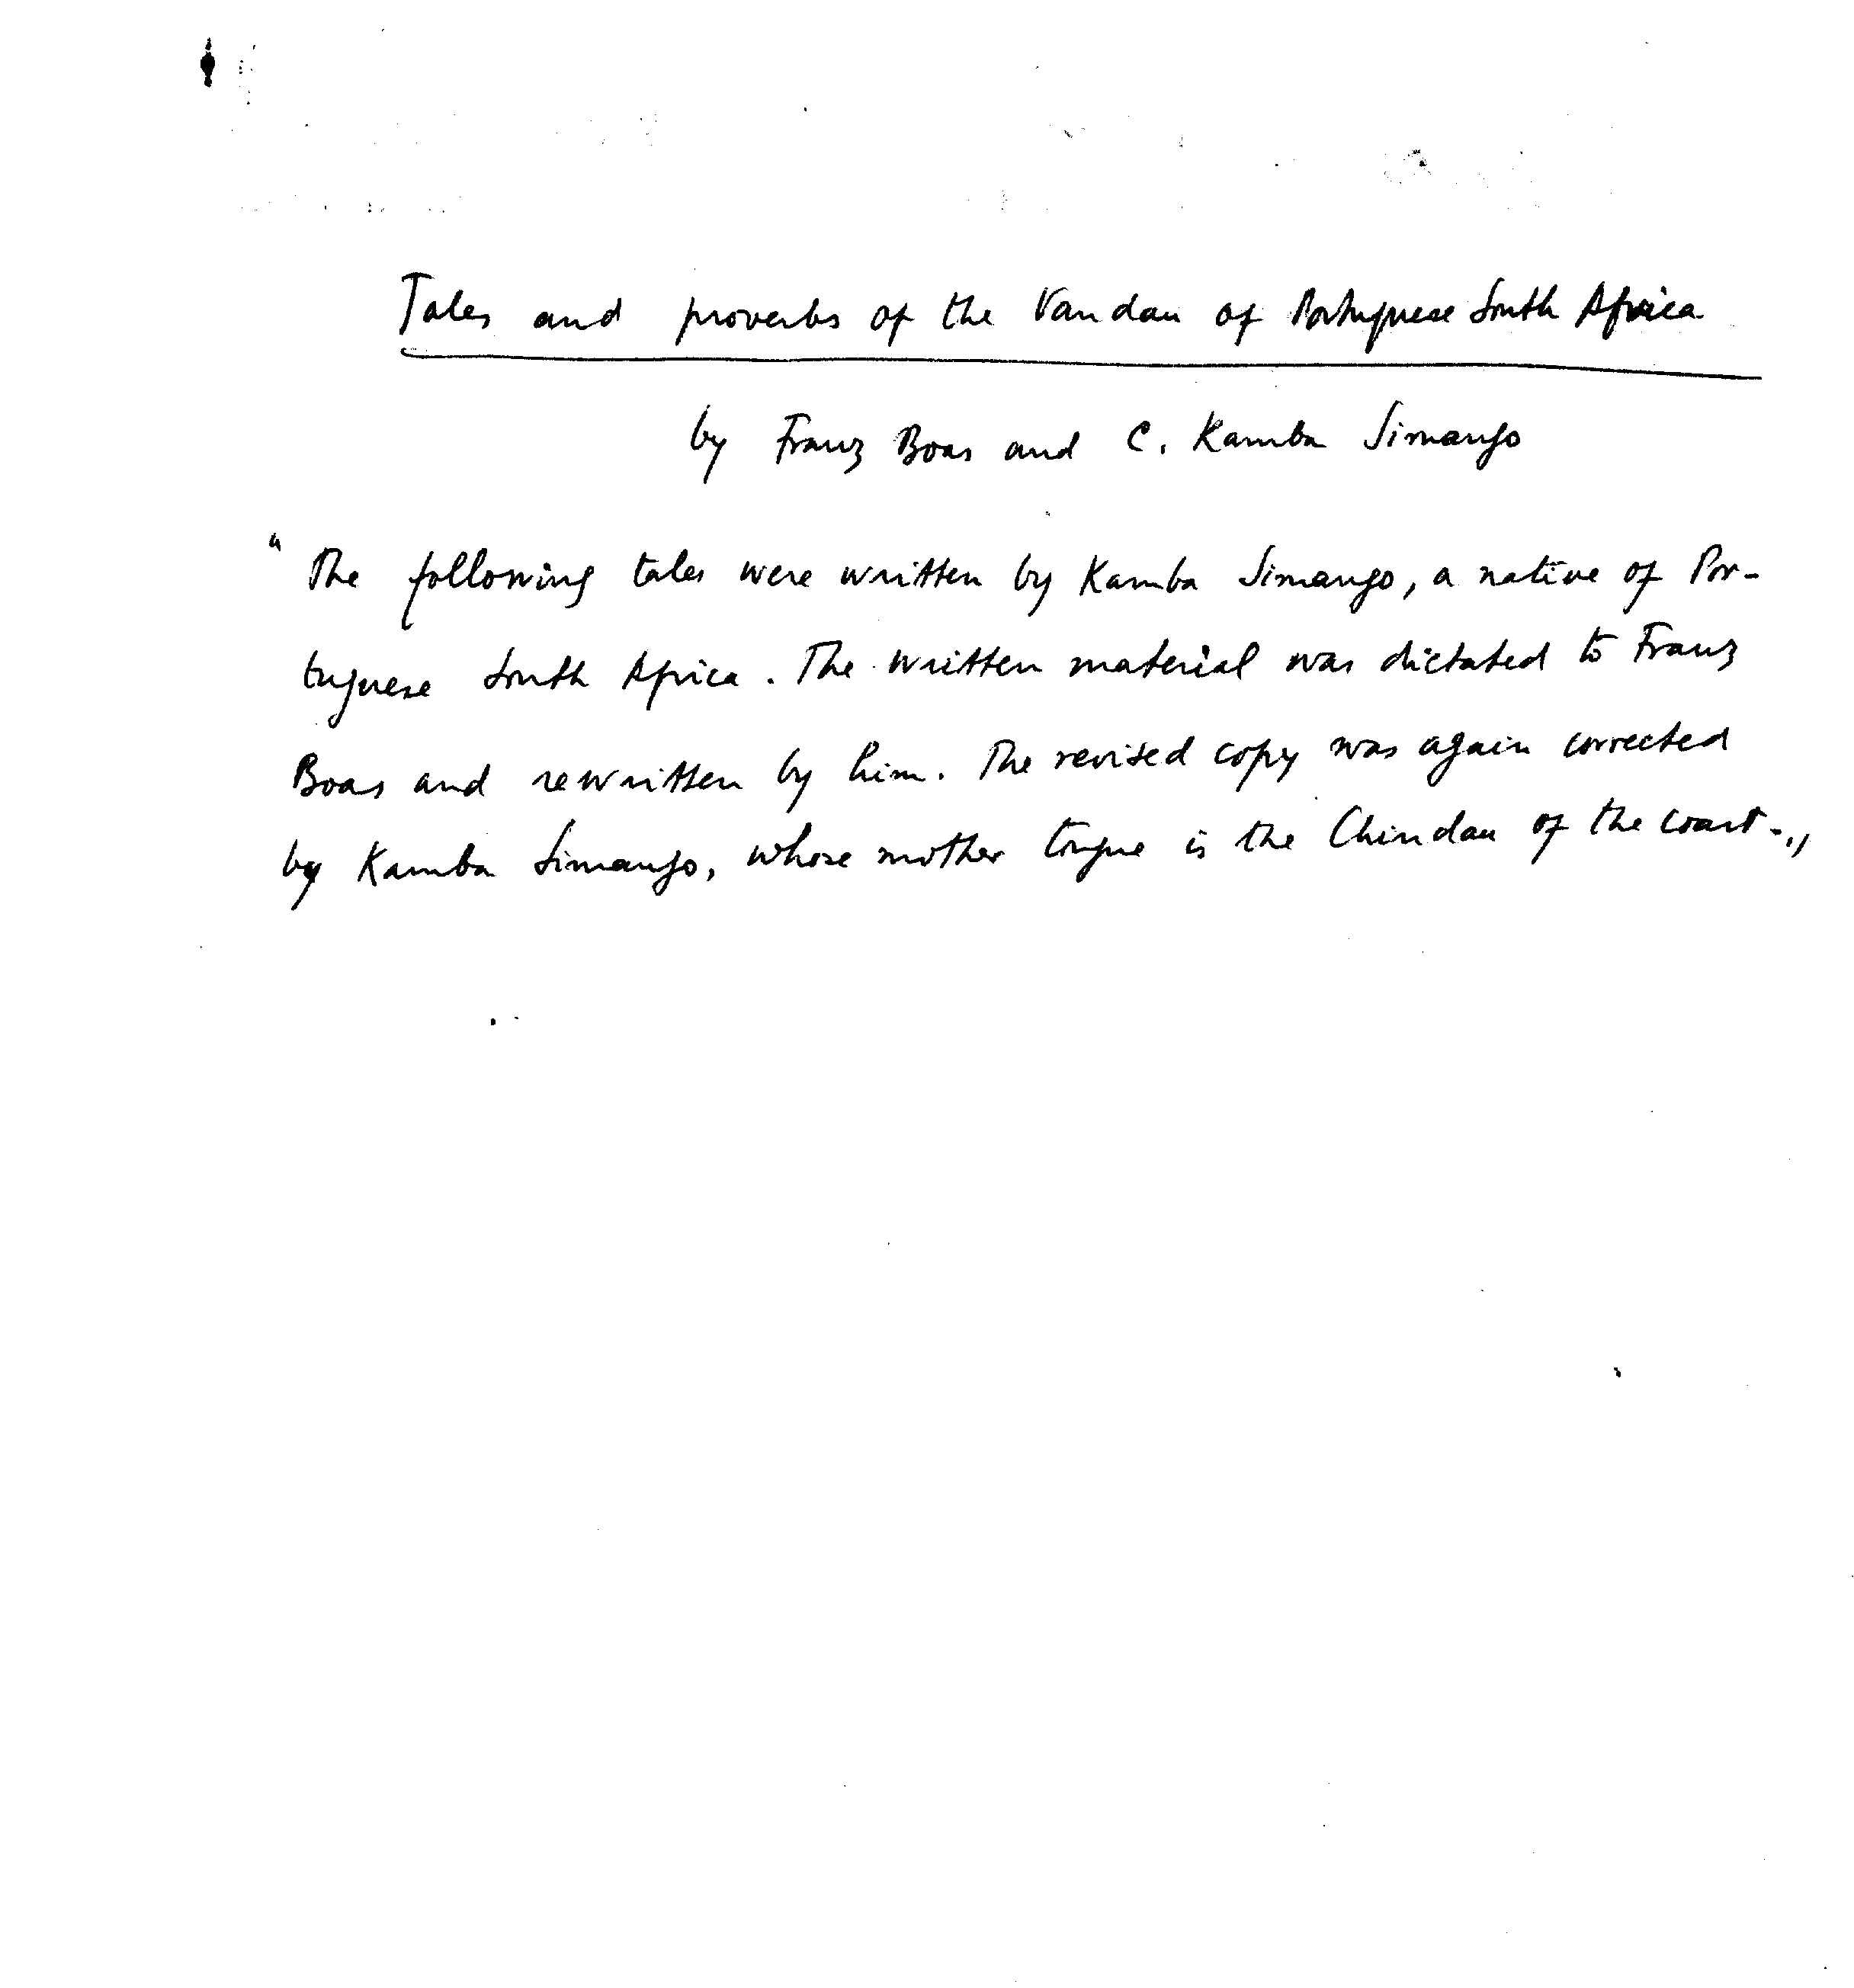 Tales and proverbs of the Vandau of Portuguese South Africa
by Franz Boas and C. Kamba Simango
"The following tales were written by Kamba Simango, a native of Por-
tuguese South Africa. The written material was dictated to Franz
Boas and rewritten by him. The revised copy was again corrected
by Kamba Simango, whose mother tongue is the Chindau of the coast-.,,